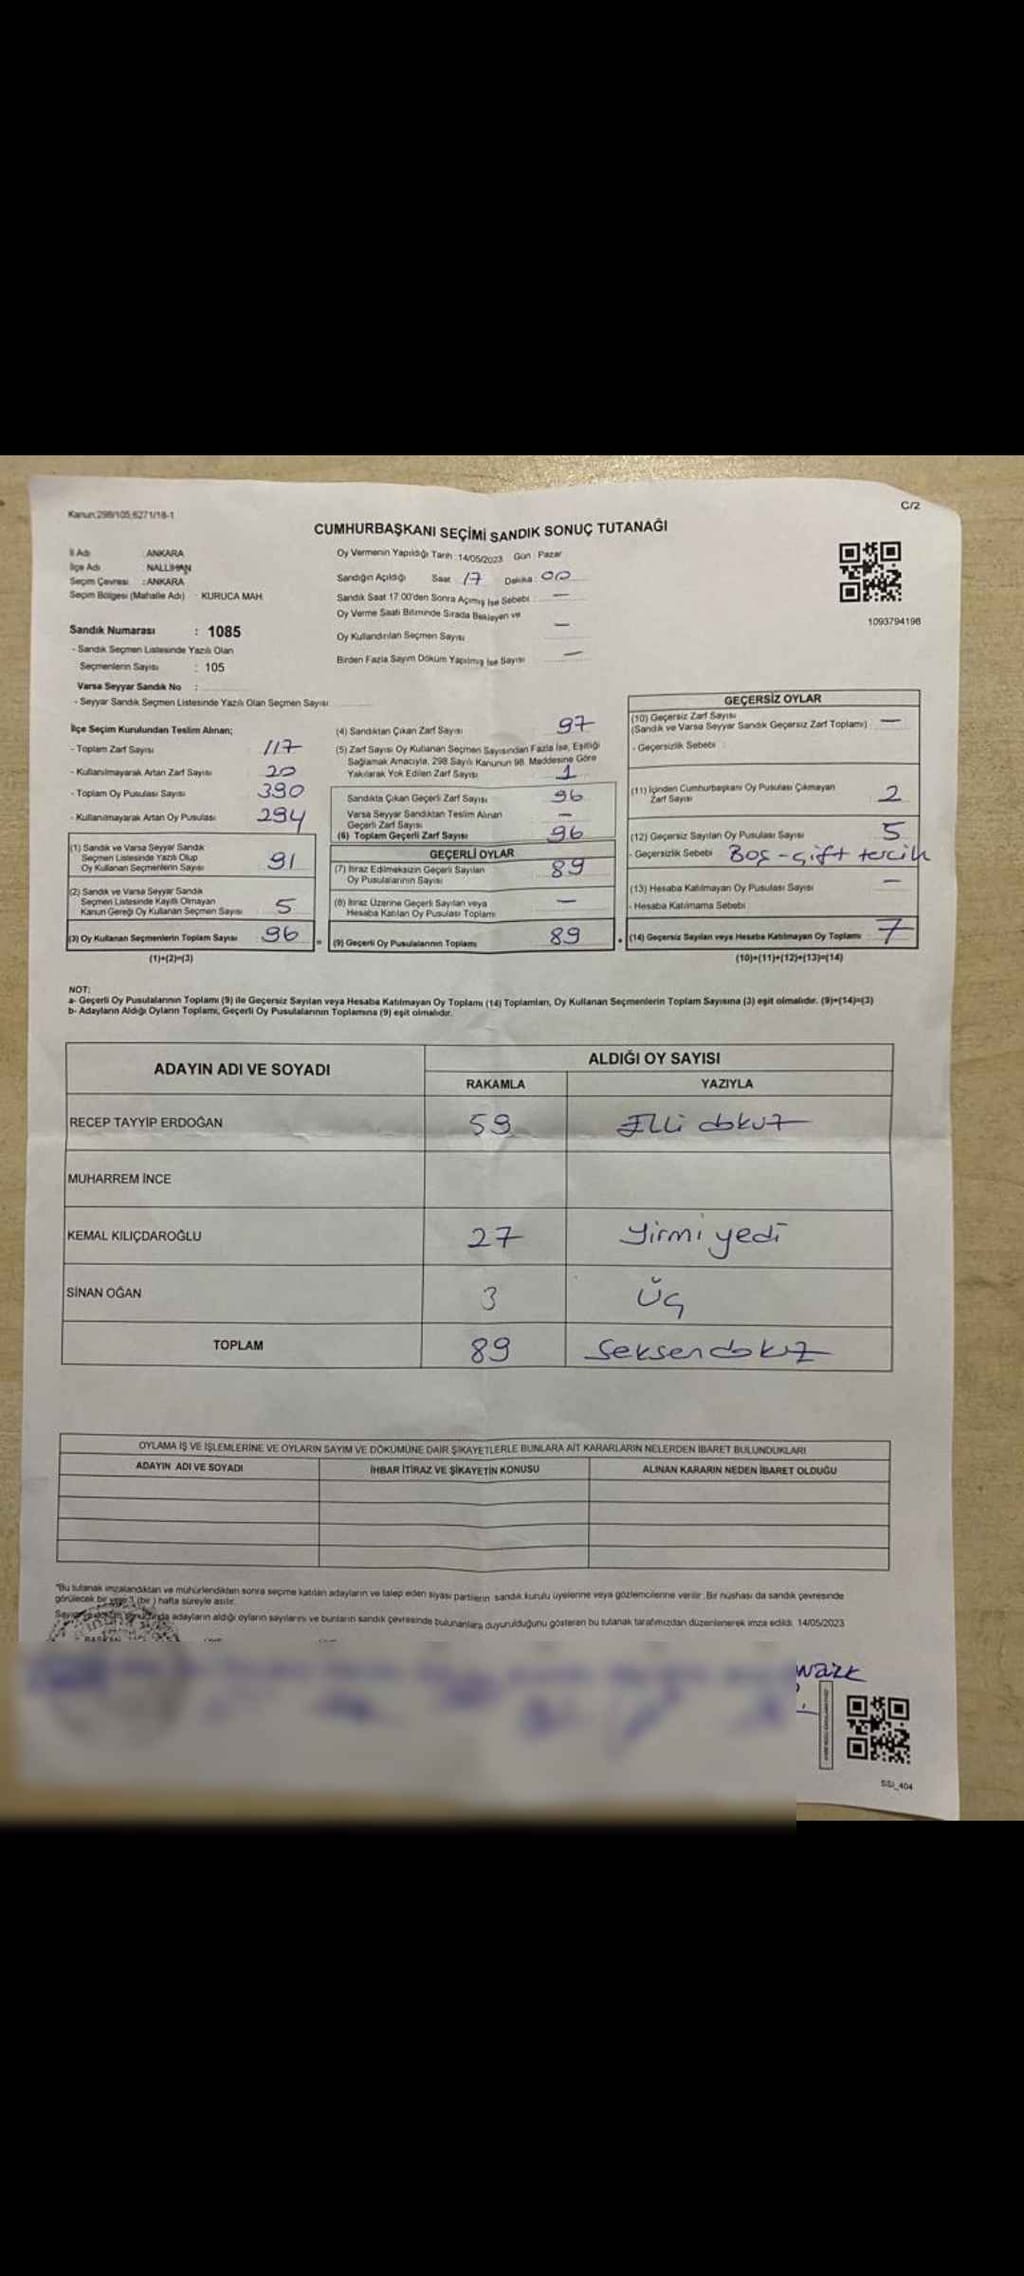 Kanun:298/105;6271/18-1
C/2
CUMHURBAŞKANI SEÇİMİ SANDIK SONUÇ TUTANAĞI
İl Adı : ANKARA
İlçe Adı : NALLIHAN
Seçim Çevresi : ANKARA
Seçim Bölgesi (Mahalle Adı) : KURUCA MAH.
Sandık Numarası : 1085
- Sandık Seçmen Listesinde Yazılı Olan
Seçmenlerin Sayısı : 105
Varsa Seyyar Sandık No :
- Seyyar Sandık Seçmen Listesinde Yazılı Olan Seçmen Sayısı
Oy Vermenin Yapıldığı Tarih : 14/05/2023 Gün : Pazar
Sandığın Açıldığı Saat 17 Dakika : 00
Sandık Saat 17.00'den Sonra Açılmış İse Sebebi : —
Oy Verme Saati Bitiminde Sırada Bekleyen ve
Oy Kullandırılan Seçmen Sayısı —
Birden Fazla Sayım Döküm Yapılmış İse Sayısı —
1093794196
İlçe Seçim Kurulundan Teslim Alınan;
- Toplam Zarf Sayısı 117
- Kullanılmayarak Artan Zarf Sayısı 20
- Toplam Oy Pusulası Sayısı 390
- Kullanılmayarak Artan Oy Pusulası 294
(1) Sandık ve Varsa Seyyar Sandık
Seçmen Listesinde Yazılı Olup
Oy Kullanan Seçmenlerin Sayısı 91
(2) Sandık ve Varsa Seyyar Sandık
Seçmen Listesinde Kayıtlı Olmayan
Kanun Gereği Oy Kullanan Seçmen Sayısı 5
(3) Oy Kullanan Seçmenlerin Toplam Sayısı 96
(1)+(2)=(3)
(4) Sandıktan Çıkan Zarf Sayısı 97
(5) Zarf Sayısı Oy Kullanan Seçmen Sayısından Fazla İse, Eşitliği
Sağlamak Amacıyla, 298 Sayılı Kanunun 98. Maddesine Göre
Yakılarak Yok Edilen Zarf Sayısı 1
Sandıkta Çıkan Geçerli Zarf Sayısı 96
Varsa Seyyar Sandıktan Teslim Alınan
Geçerli Zarf Sayısı —
(6) Toplam Geçerli Zarf Sayısı 96
GEÇERLİ OYLAR
(7) İtiraz Edilmeksizin Geçerli Sayılan
Oy Pusulalarının Sayısı 89
(8) İtiraz Üzerine Geçerli Sayılan veya
Hesaba Katılan Oy Pusulası Toplamı —
= (9) Geçerli Oy Pusulalarının Toplamı 89
GEÇERSİZ OYLAR
(10) Geçersiz Zarf Sayısı
(Sandık ve Varsa Seyyar Sandık Geçersiz Zarf Toplamı) —
- Geçersizlik Sebebi :
(11) İçinden Cumhurbaşkanı Oy Pusulası Çıkmayan
Zarf Sayısı 2
(12) Geçersiz Sayılan Oy Pusulası Sayısı 5
- Geçersizlik Sebebi Boş - çift tercih
(13) Hesaba Katılmayan Oy Pusulası Sayısı —
- Hesaba Katılmama Sebebi
+ (14) Geçersiz Sayılan veya Hesaba Katılmayan Oy Toplamı 7
(10)+(11)+(12)+(13)=(14)
NOT:
a- Geçerli Oy Pusulalarının Toplamı (9) ile Geçersiz Sayılan veya Hesaba Katılmayan Oy Toplamı (14) Toplamları, Oy Kullanan Seçmenlerin Toplam Sayısına (3) eşit olmalıdır. (9)+(14)=(3)
b- Adayların Aldığı Oyların Toplamı, Geçerli Oy Pusulalarının Toplamına (9) eşit olmalıdır.
ADAYIN ADI VE SOYADI
ALDIĞI OY SAYISI
RAKAMLA YAZIYLA
RECEP TAYYİP ERDOĞAN 59 Elli dokuz
MUHARREM İNCE
KEMAL KILIÇDAROĞLU 27 Yirmi yedi
SİNAN OĞAN 3 Üç
TOPLAM 89 Seksendokuz
OYLAMA İŞ VE İŞLEMLERİNE VE OYLARIN SAYIM VE DÖKÜMÜNE DAİR ŞİKAYETLERLE BUNLARA AİT KARARLARIN NELERDEN İBARET BULUNDUKLARI
ADAYIN ADI VE SOYADI İHBAR İTİRAZ VE ŞİKAYETİN KONUSU ALINAN KARARIN NEDEN İBARET OLDUĞU
"Bu tutanak imzalandıktan ve mühürlendikten sonra seçime katılan adayların ve talep eden siyasi partilerin sandık kurulu üyelerine veya gözlemcilerine verilir. Bir nüshası da sandık çevresinde
görülecek bir yere 1 (bir) hafta süreyle asılır.
adayların aldığı oyların sayılarını ve bunların sandık çevresinde bulunanlara duyurulduğunu gösteren bu tutanak tarafımızdan düzenlenerek imza edildi. 14/05/2023
BAŞKAN
SSİ_404